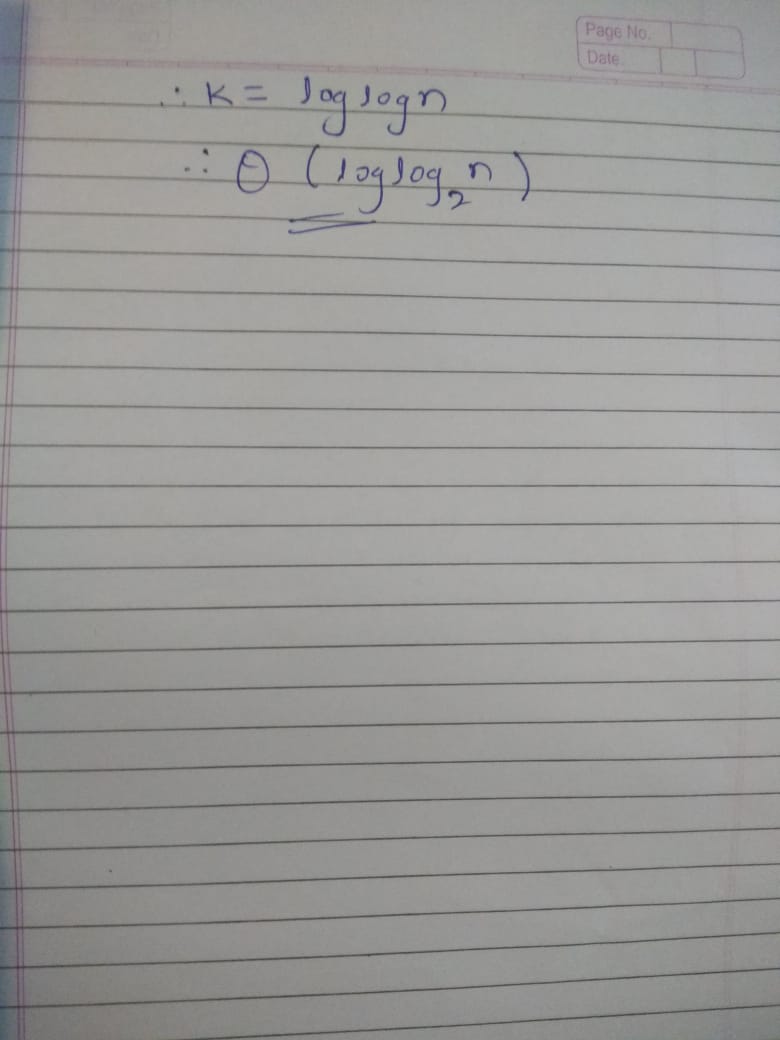 Page No.
Date
∴ K = log log n
∴ Θ (log log₂ n)